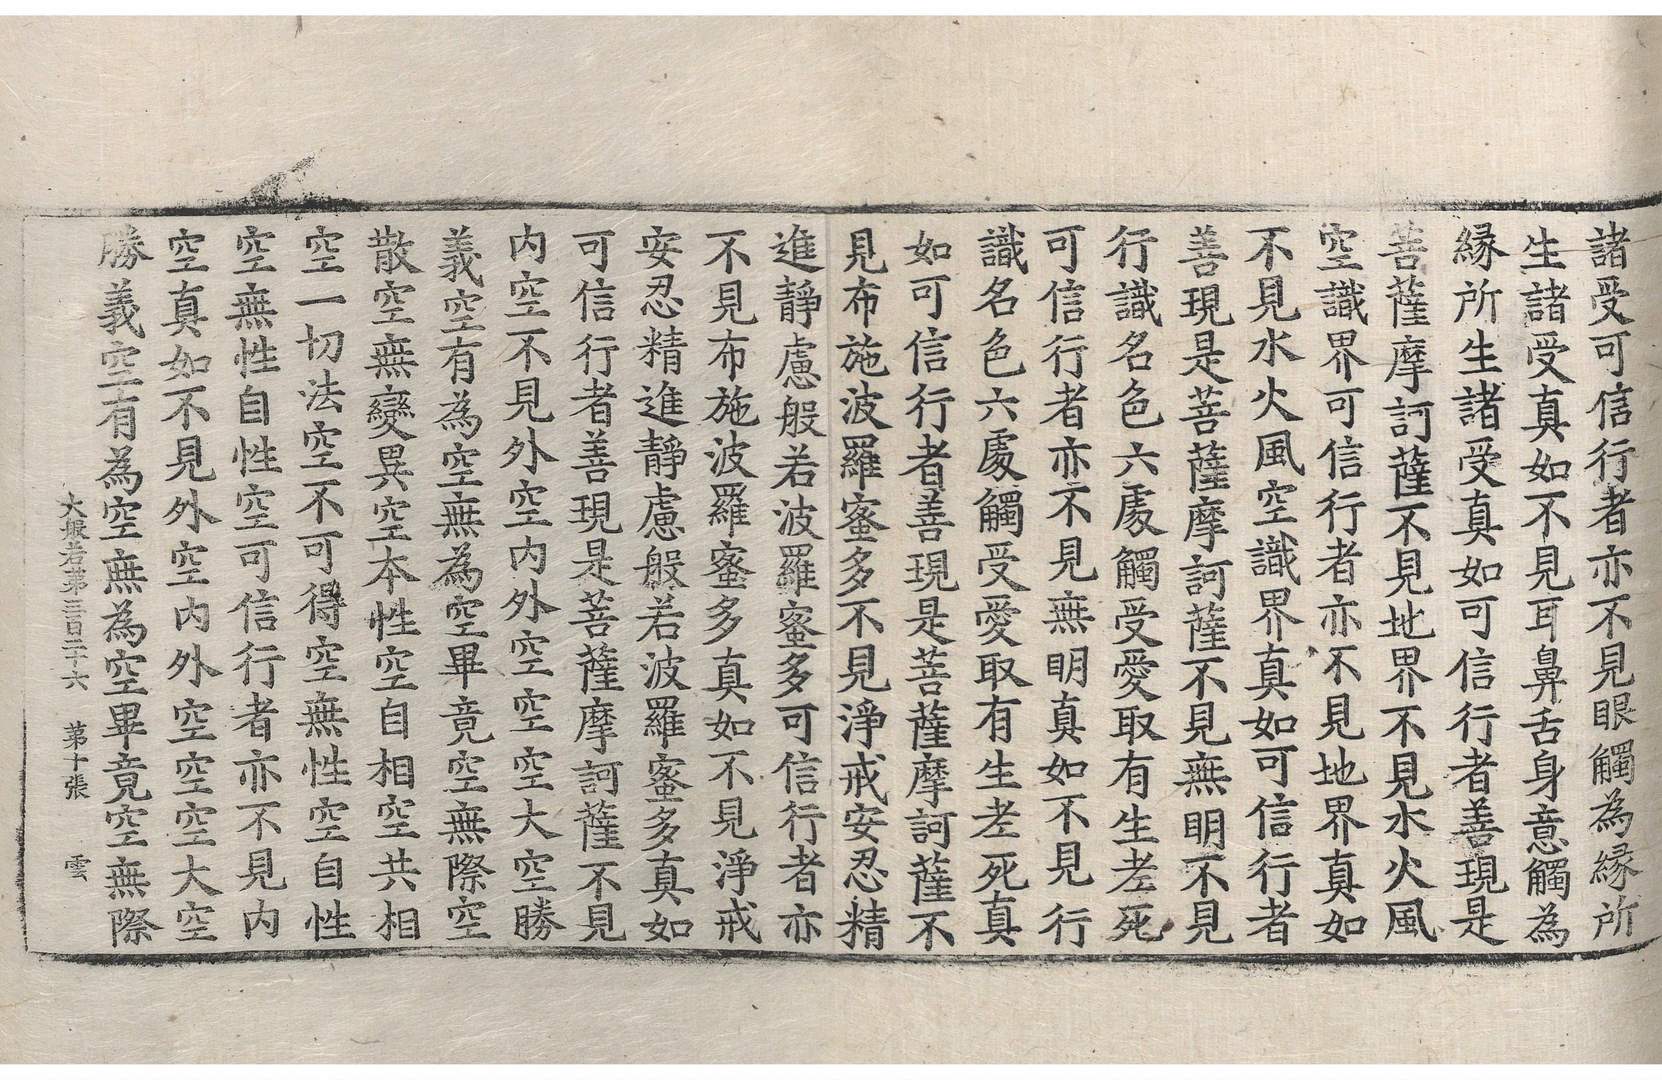 諸受可信行者亦不見眼觸為縁所
生諸受真如不見耳鼻舌身意觸為
縁所生諸受真如可信行者善現是
菩薩摩訶薩不見地界不見水火風
空識界可信行者亦不見地界真如
不見水火風空識界真如可信行者
善現是菩薩摩訶薩不見無明不見
行識名色六處觸受愛取有生老死
可信行者亦不見無明真如不見行
識名色六處觸受愛取有生老死真
如可信行者善現是菩薩摩訶薩不
見布施波羅蜜多不見淨戒安忍精
進靜慮般若波羅蜜多可信行者亦
不見布施波羅蜜多真如不見淨戒
安忍精進靜慮般若波羅蜜多真如
可信行者善現是菩薩摩訶薩不見
内空不見外空内外空空空大空勝
義空有為空無為空畢竟空無際空
散空無變異空本性空自相空共相
空一切法空不可得空無性空自性
空無性自性空可信行者亦不見内
空真如不見外空内外空空空大空
勝義空有為空無為空畢竟空無際
大般若第三百二十六 第十張 雲